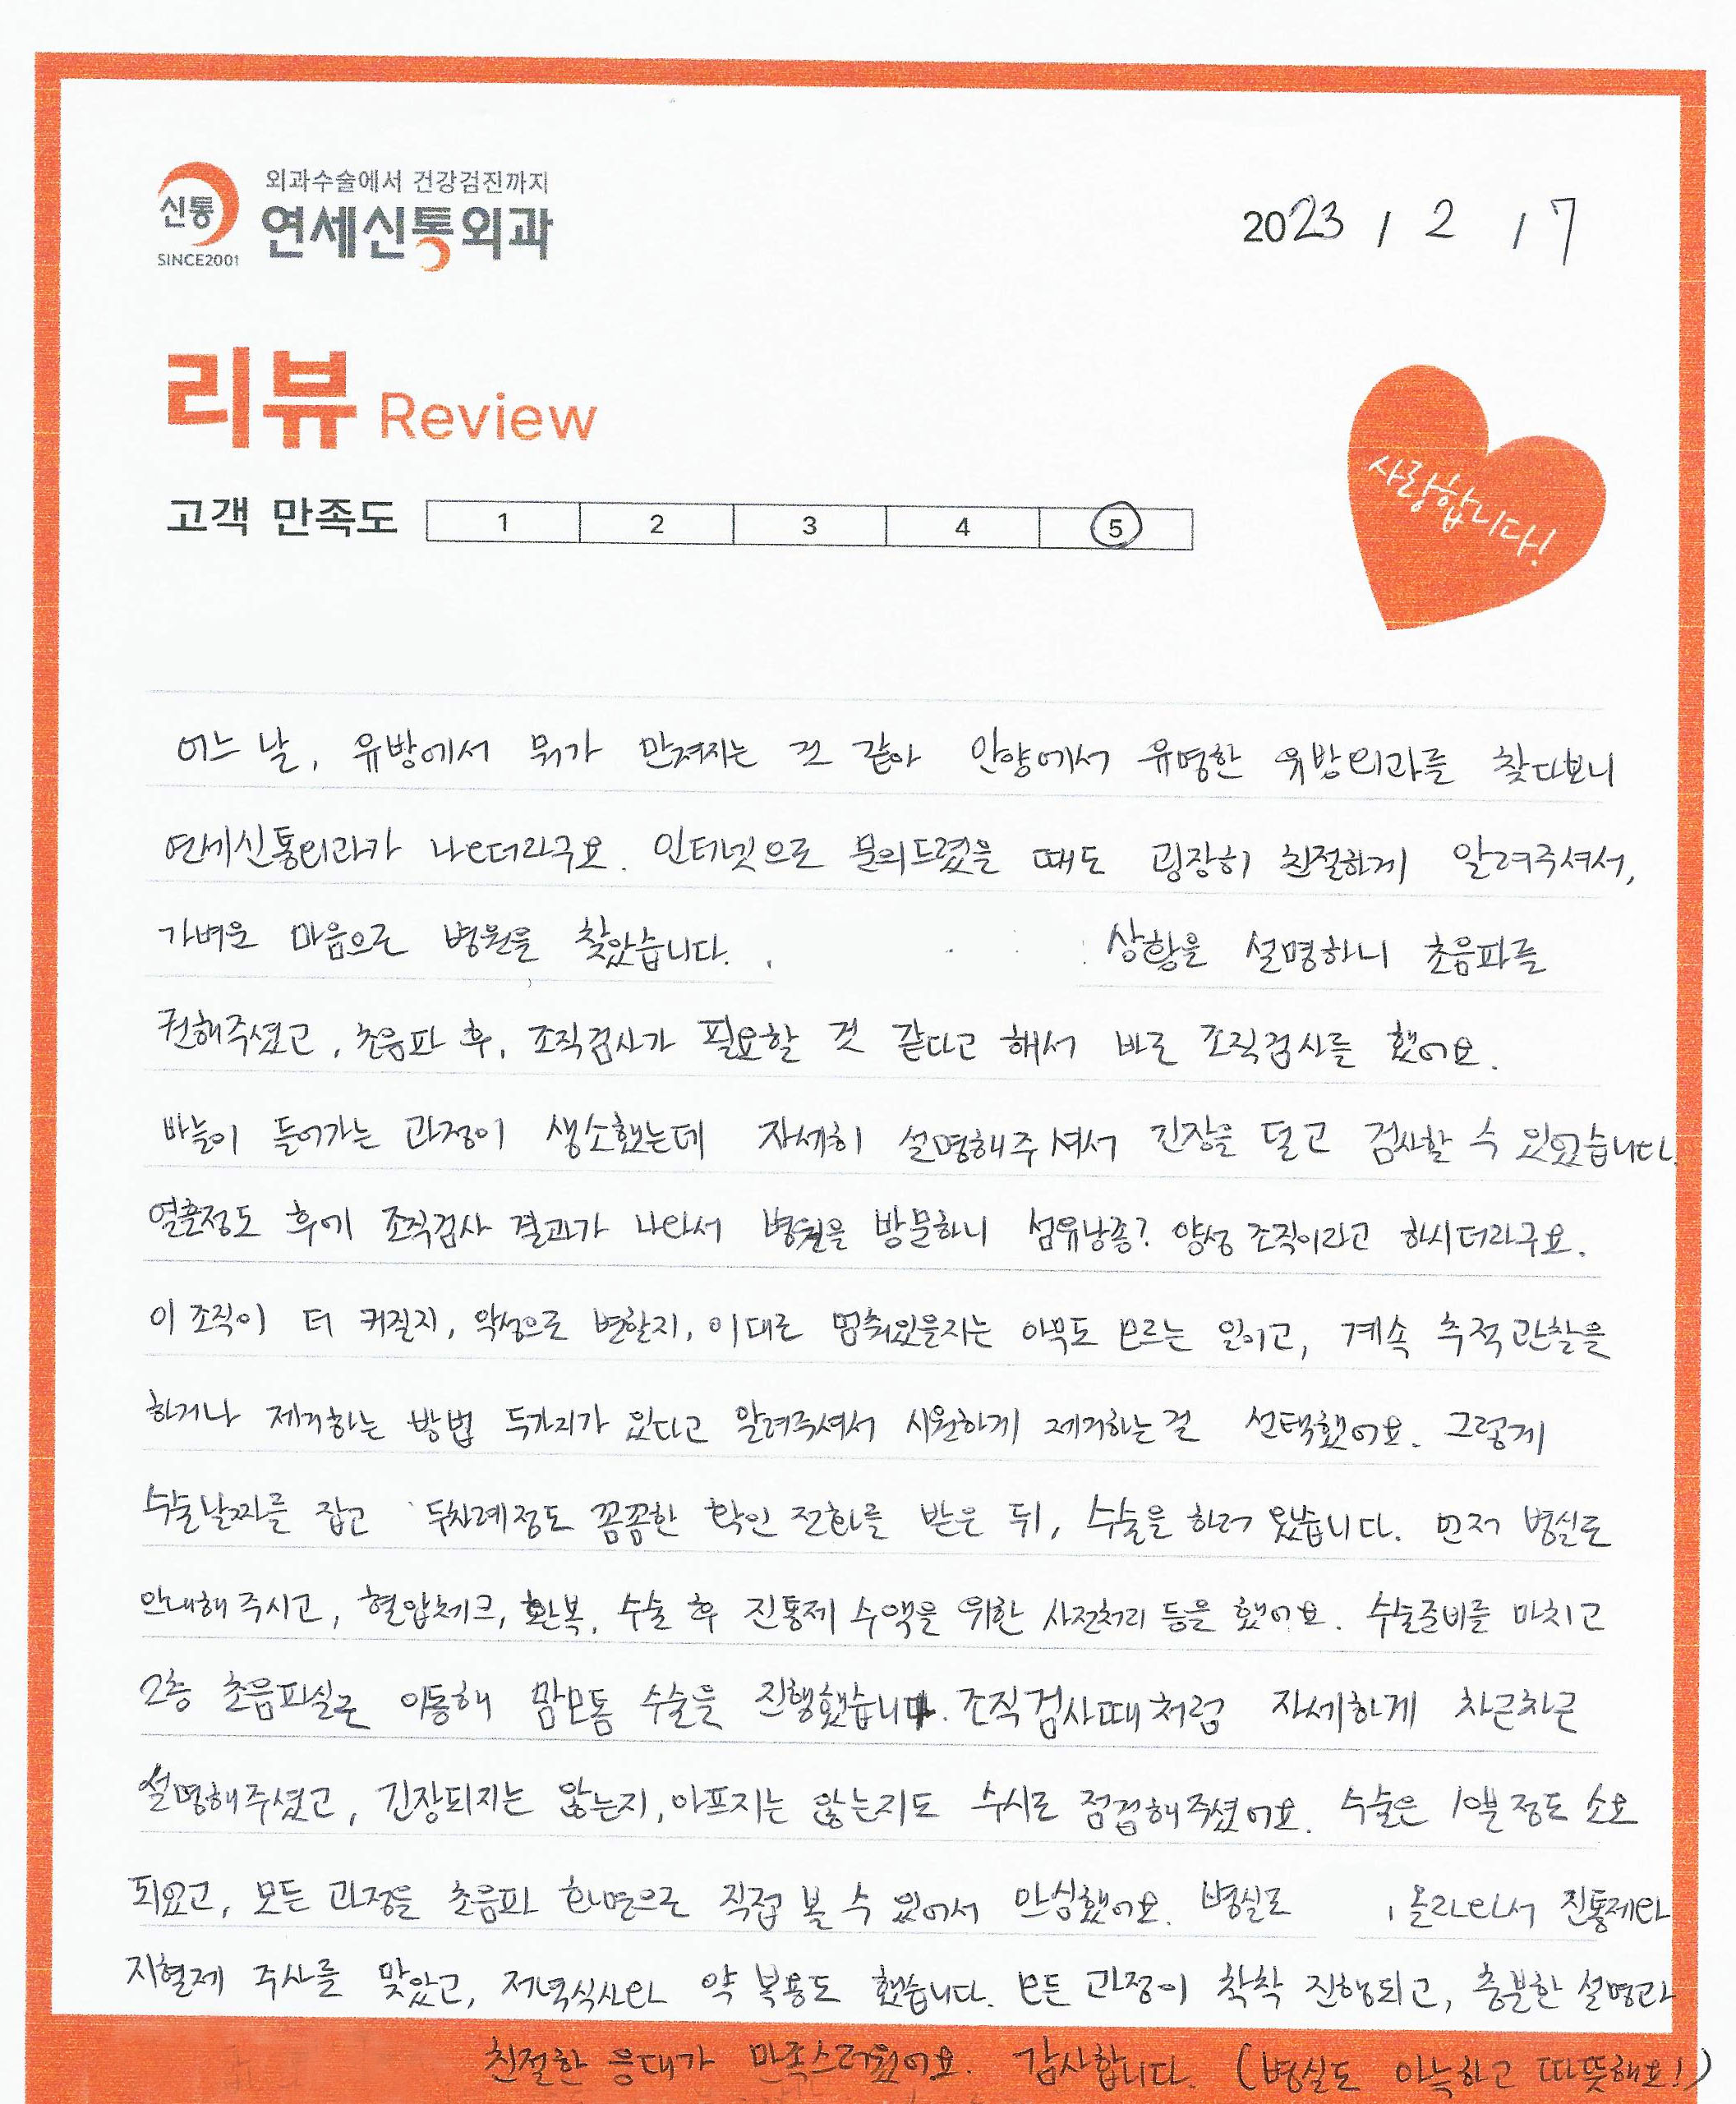 외과수술에서 건강검진까지
신통
연세신통외과
SINCE2001
2023 / 2 / 7
리뷰 Review
사랑합니다!
고객 만족도 1 2 3 4 5
어느 날, 유방에서 뭐가 만져지는 것 같아 안양에서 유명한 유방외과를 찾다보니
연세신통외과가 나오더라구요. 인터넷으로 문의드렸을 때도 굉장히 친절하게 알려주셔서,
가벼운 마음으로 병원을 찾았습니다. 상황을 설명하니 초음파를
권해주셨고, 초음파 후, 조직검사가 필요할 것 같다고 해서 바로 조직검사를 했어요.
바늘이 들어가는 과정이 생소했는데 자세히 설명해주셔서 긴장을 덜고 검사할 수 있었습니다.
열흘정도 후에 조직검사 결과가 나와서 병원을 방문하니 섬유낭종? 양성 조직이라고 하시더라구요.
이 조직이 더 커질지, 악성으로 변할지, 이대로 멈춰있을지는 아무도 모르는 일이고, 계속 추적관찰을
하거나 제거하는 방법 두가지가 있다고 알려주셔서 시원하게 제거하는걸 선택했어요. 그렇게
수술날짜를 잡고 두차례정도 꼼꼼한 확인 전화를 받은 뒤, 수술을 하러 왔습니다. 먼저 병실로
안내해 주시고, 혈압체크, 환복, 수술 후 진통제 수액을 위한 사전처리 등을 했어요. 수술준비를 마치고
2층 초음파실로 이동해 맘모톰 수술을 진행했습니다. 조직검사때처럼 자세하게 차근차근
설명해주셨고, 긴장되지는 않는지, 아프지는 않는지도 수시로 점검해주셨어요. 수술은 10분 정도 소요
되었고, 모든 과정을 초음파 화면으로 직접 볼 수 있어서 안심했어요. 병실로 올라와서 진통제와
지혈제 주사를 맞았고, 저녁식사와 약 복용도 했습니다. 모든 과정이 착착 진행되고, 충분한 설명과
친절한 응대가 만족스러웠어요. 감사합니다. (병실도 아늑하고 따뜻해요!)